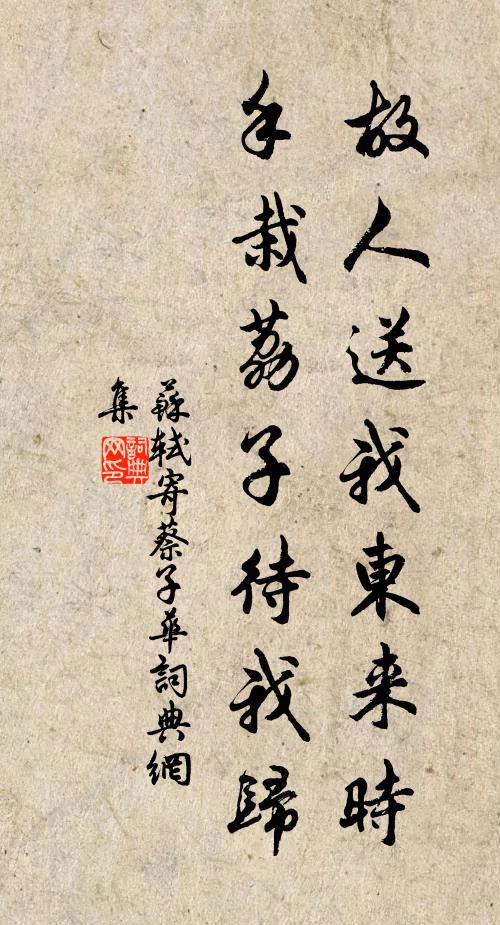 故人送我東来時
手栽荔子待我歸
蘇軾寄蔡子華詞典網
集
詞典網印